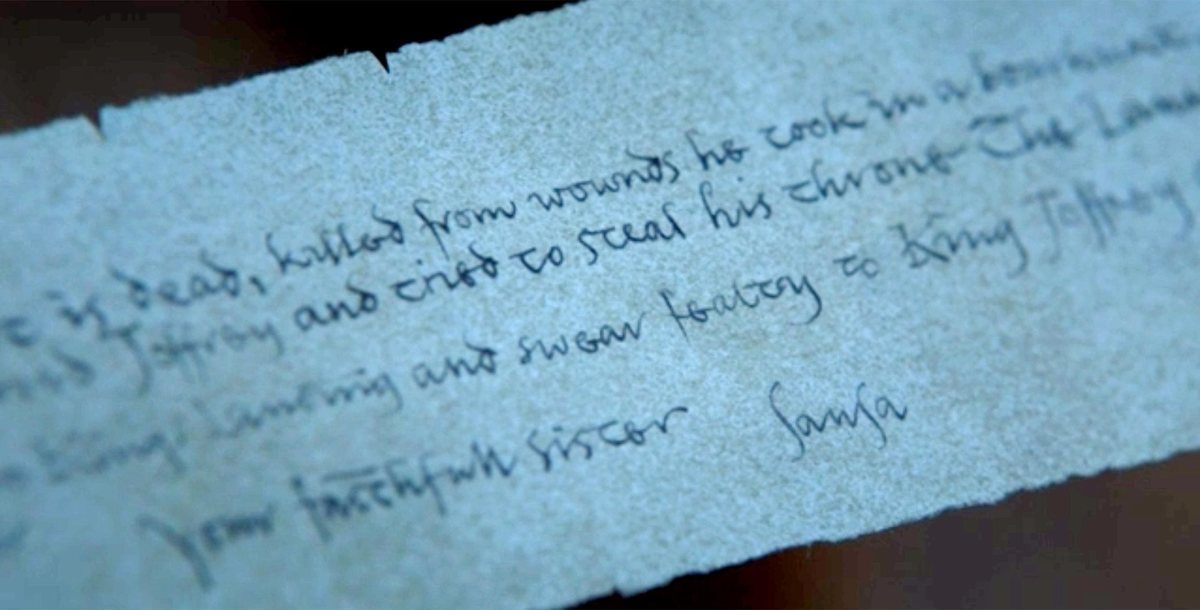 is dead, killed from wounds he took in a boarhunt
Joffrey and tried to steal his throne The
Kings Landing and swear fealty to King Joffrey
Your faithfull sister Sansa